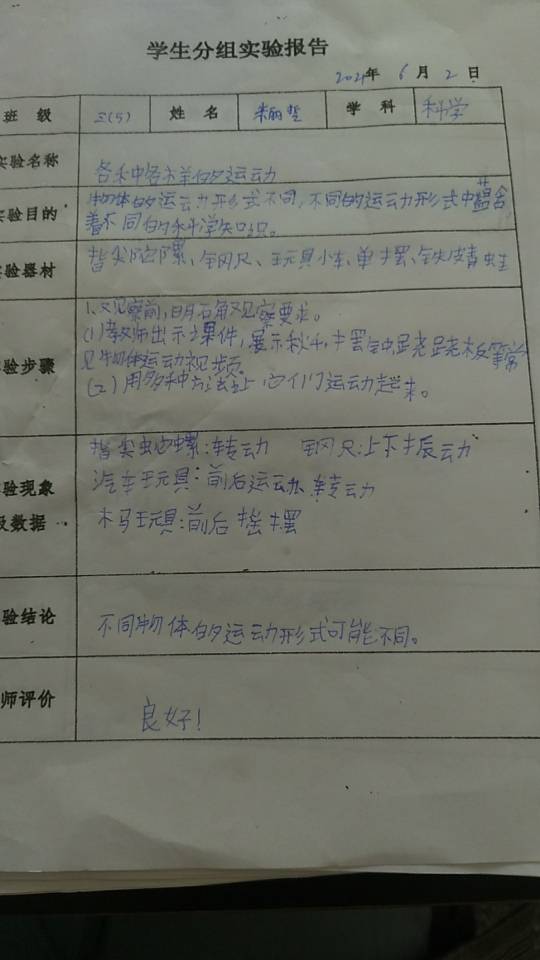 学生分组实验报告
2021年 6月 2日
班 级 三(5) 姓 名 学 科 科学
实验名称 各种各样的运动
实验目的 物体的运动形式不同,不同的运动形式中蕴含
着不同的科学知识。
实验器材 指尖陀螺、钢尺、玩具小车、单摆、铁皮青蛙
1.观察前,明确观察要求。
(1)教师出示课件,展示秋千,摆钟,跷跷板等常
验步骤 见物体运动视频。
(2)用多种方法让它们运动起来。
指尖陀螺:转动 钢尺:上下振动
验现象 汽车玩具:前后运动、转动
及数据 木马玩具:前后摇摆
验结论 不同物体的运动形式可能不同。
师评价 良好!